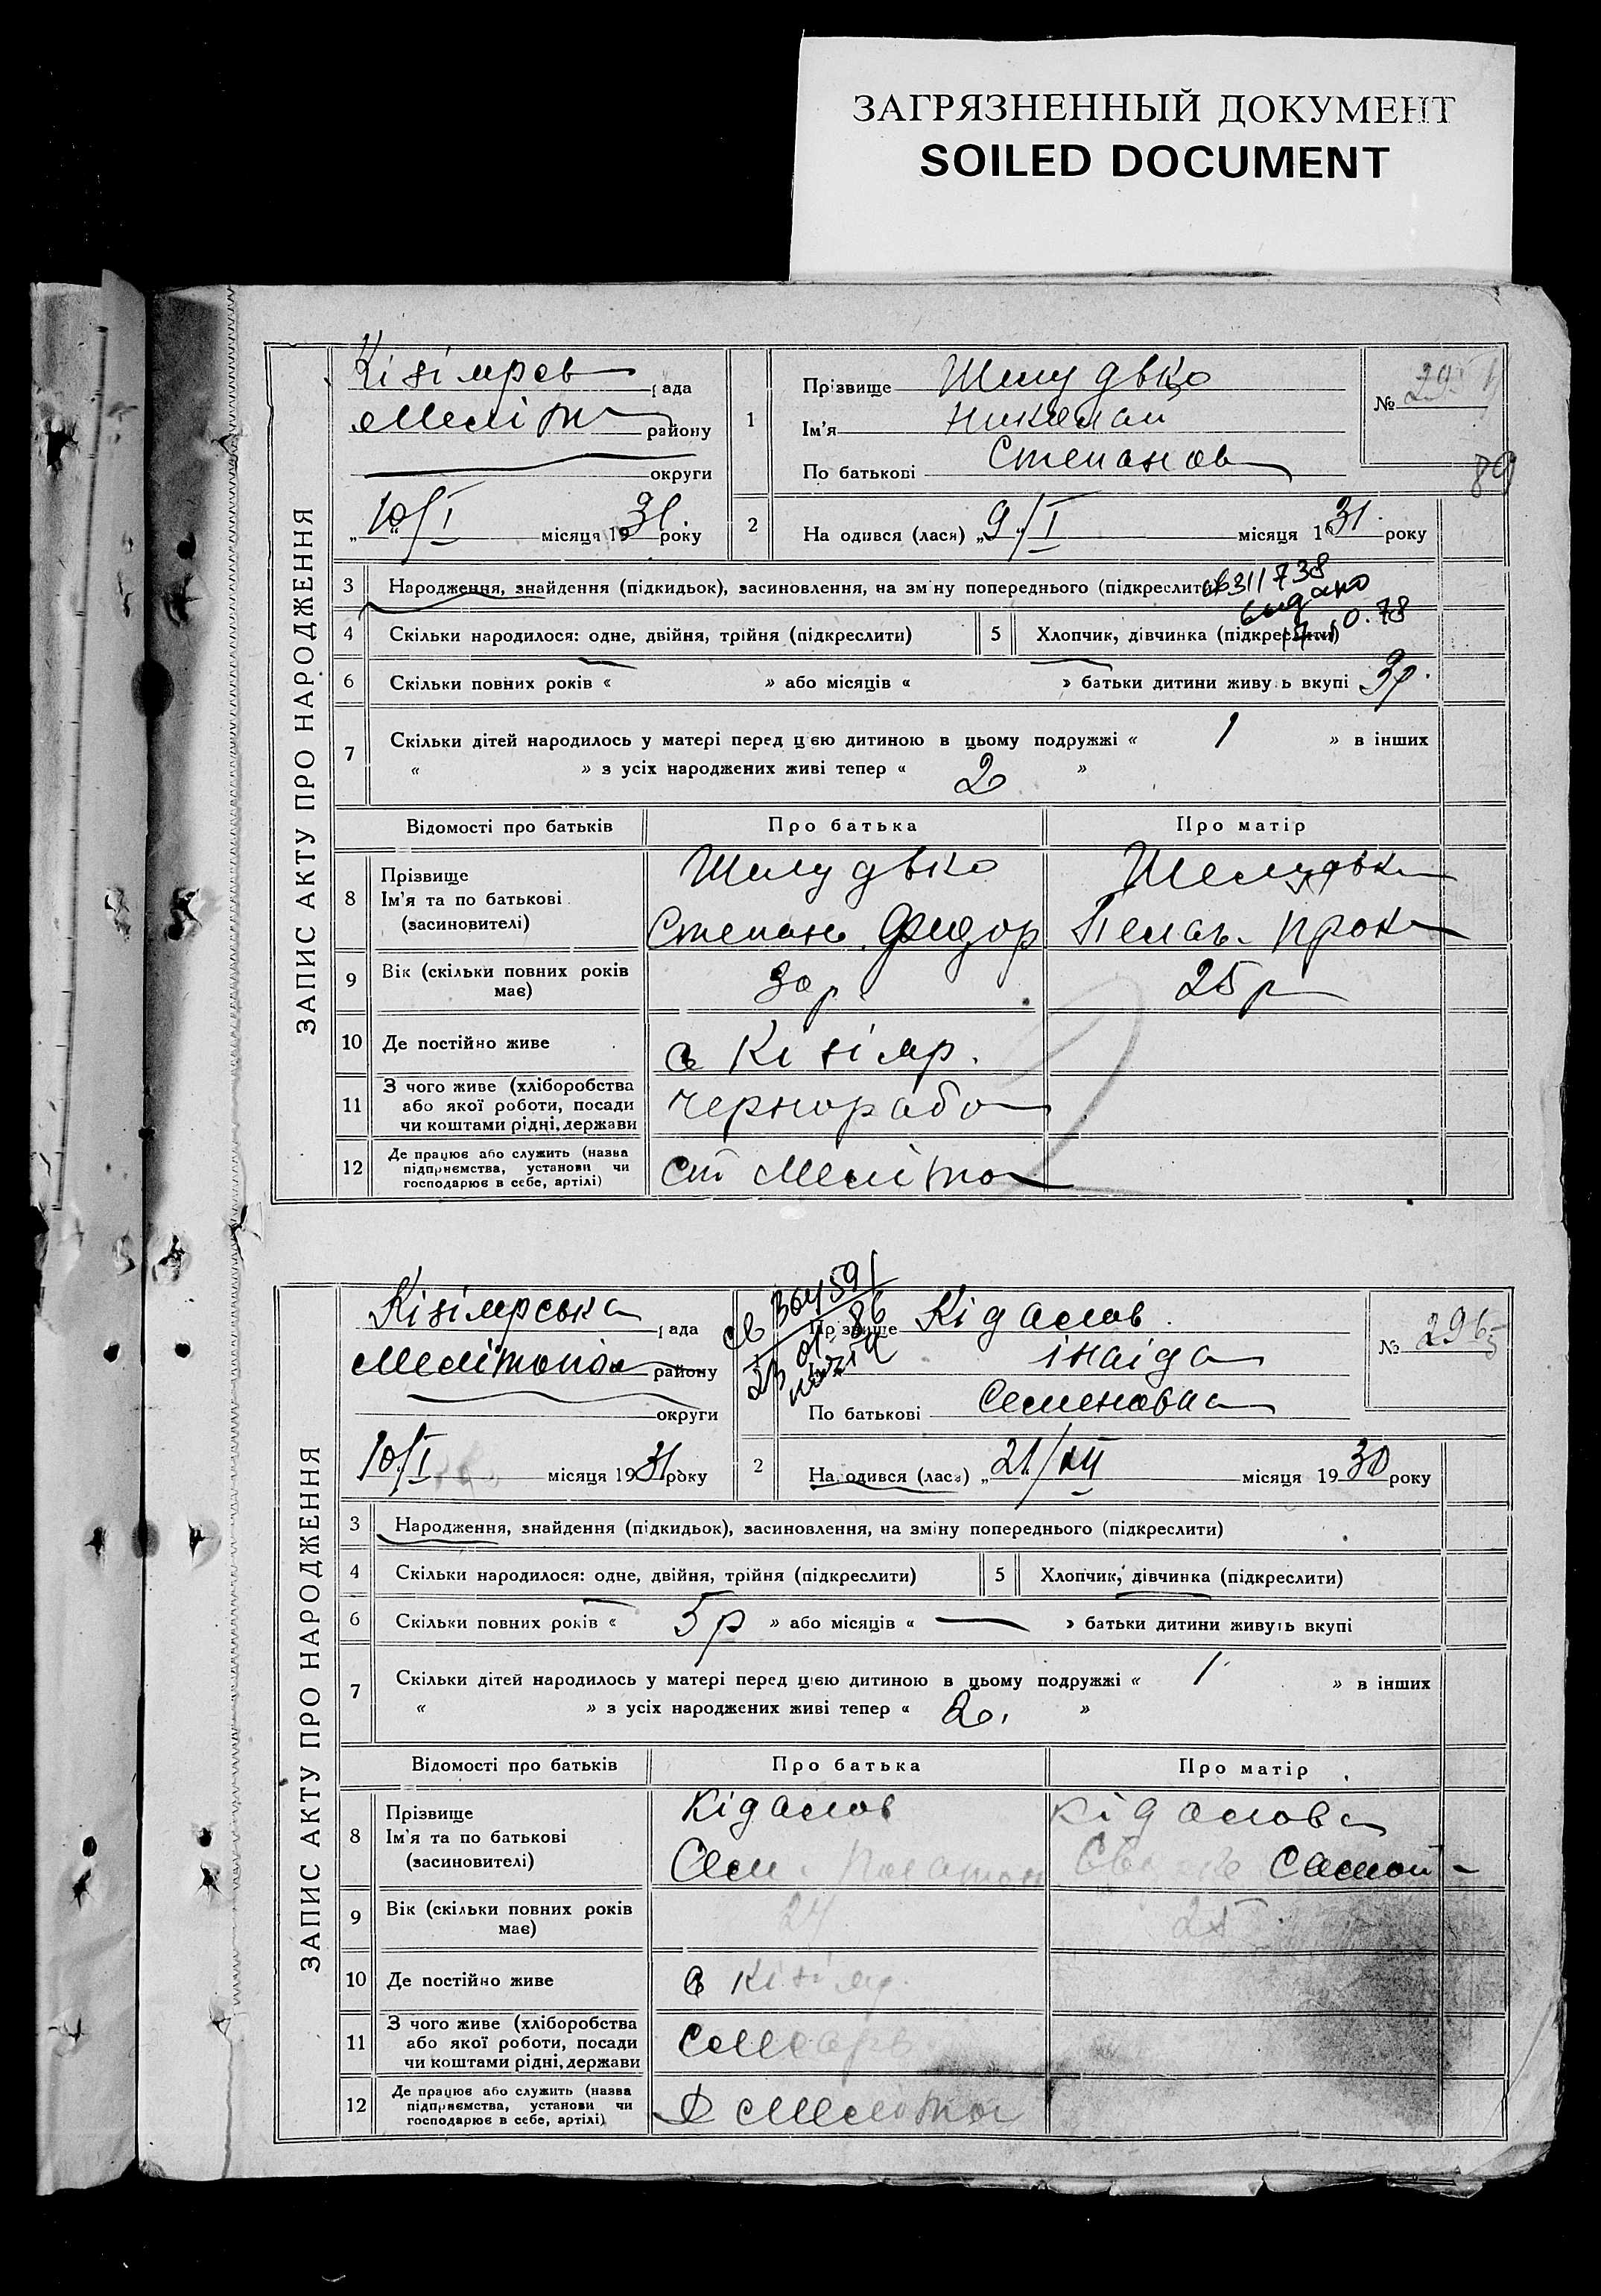 ЗАГРЯЗНЕННЫЙ ДОКУМЕНТ
SOILED DOCUMENT
ЗАПИС АКТУ ПРО НАРОДЖЕННЯ
Кізіярсв рада
Меліт району
округи
„10/I місяця 1931 року
1
Прізвище Шелудько
Ім'я Николай
По батькові Степанов
№
89
2 На одився (лася) „9/I місяця 1931 року
3 Народження, знайдення (підкидьок), засиновлення, на зміну попереднього (підкреслити)
св311738
выдано
4 Скільки народилося: одне, двійня, трійня (підкреслити)
5 Хлопчик, дівчинка (підкреслити)
6 Скільки повних років « » або місяців « » батьки дитини живуть вкупі 3р.
7 Скільки дітей народилось у матері перед цією дитиною в цьому подружжі « 1 » в інших
« » з усіх народжених живі тепер « 2 »
Відомості про батьків Про батька Про матір
8 Прізвище
Ім'я та по батькові
(засновителі)
Шелудько Шелудьк
Степань Федор Пелаг. Прок
9 Вік (скільки повних років
має) 30р. 25р
10 Де постійно живе с Кізіяр.
11 З чого живе (хліборобства
або якої роботи, посади
чи коштами рідні, держави
чернорабо
12 Де працює або служить (назва
підприємства, установи чи
господарює в себе, артілі)
ст Меліто
ЗАПИС АКТУ ПРО НАРОДЖЕННЯ
Кізіярська рада
Мелітопол району
округи
10/I місяця 1931 року
св 364591
Прізвище Кідалов
інаіда
По батькові Семеновна
№ 295
2 На одився (лася) „21/XII місяця 1930 року
3 Народження, знайдення (підкидьок), засиновлення, на зміну попереднього (підкреслити)
4 Скільки народилося: одне, двійня, трійня (підкреслити)
5 Хлопчик, дівчинка (підкреслити)
6 Скільки повних років « 5р » або місяців « — » батьки дитини живуть вкупі
7 Скільки дітей народилось у матері перед цією дитиною в цьому подружжі « 1 » в інших
« » з усіх народжених живі тепер « 2. »
Відомості про батьків Про батька Про матір
8 Прізвище
Ім'я та по батькові
(засиновителі)
Кідалов Кідалова
Сем. Самой-
9 Вік (скільки повних років
має) 24 25
10 Де постійно живе с Кізіяр.
11 З чого живе (хліборобства
або якої роботи, посади
чи коштами рідні, держави
12 Де працює або служить (назва
підприємства, установи чи
господарює в себе, артілі)
Меліто